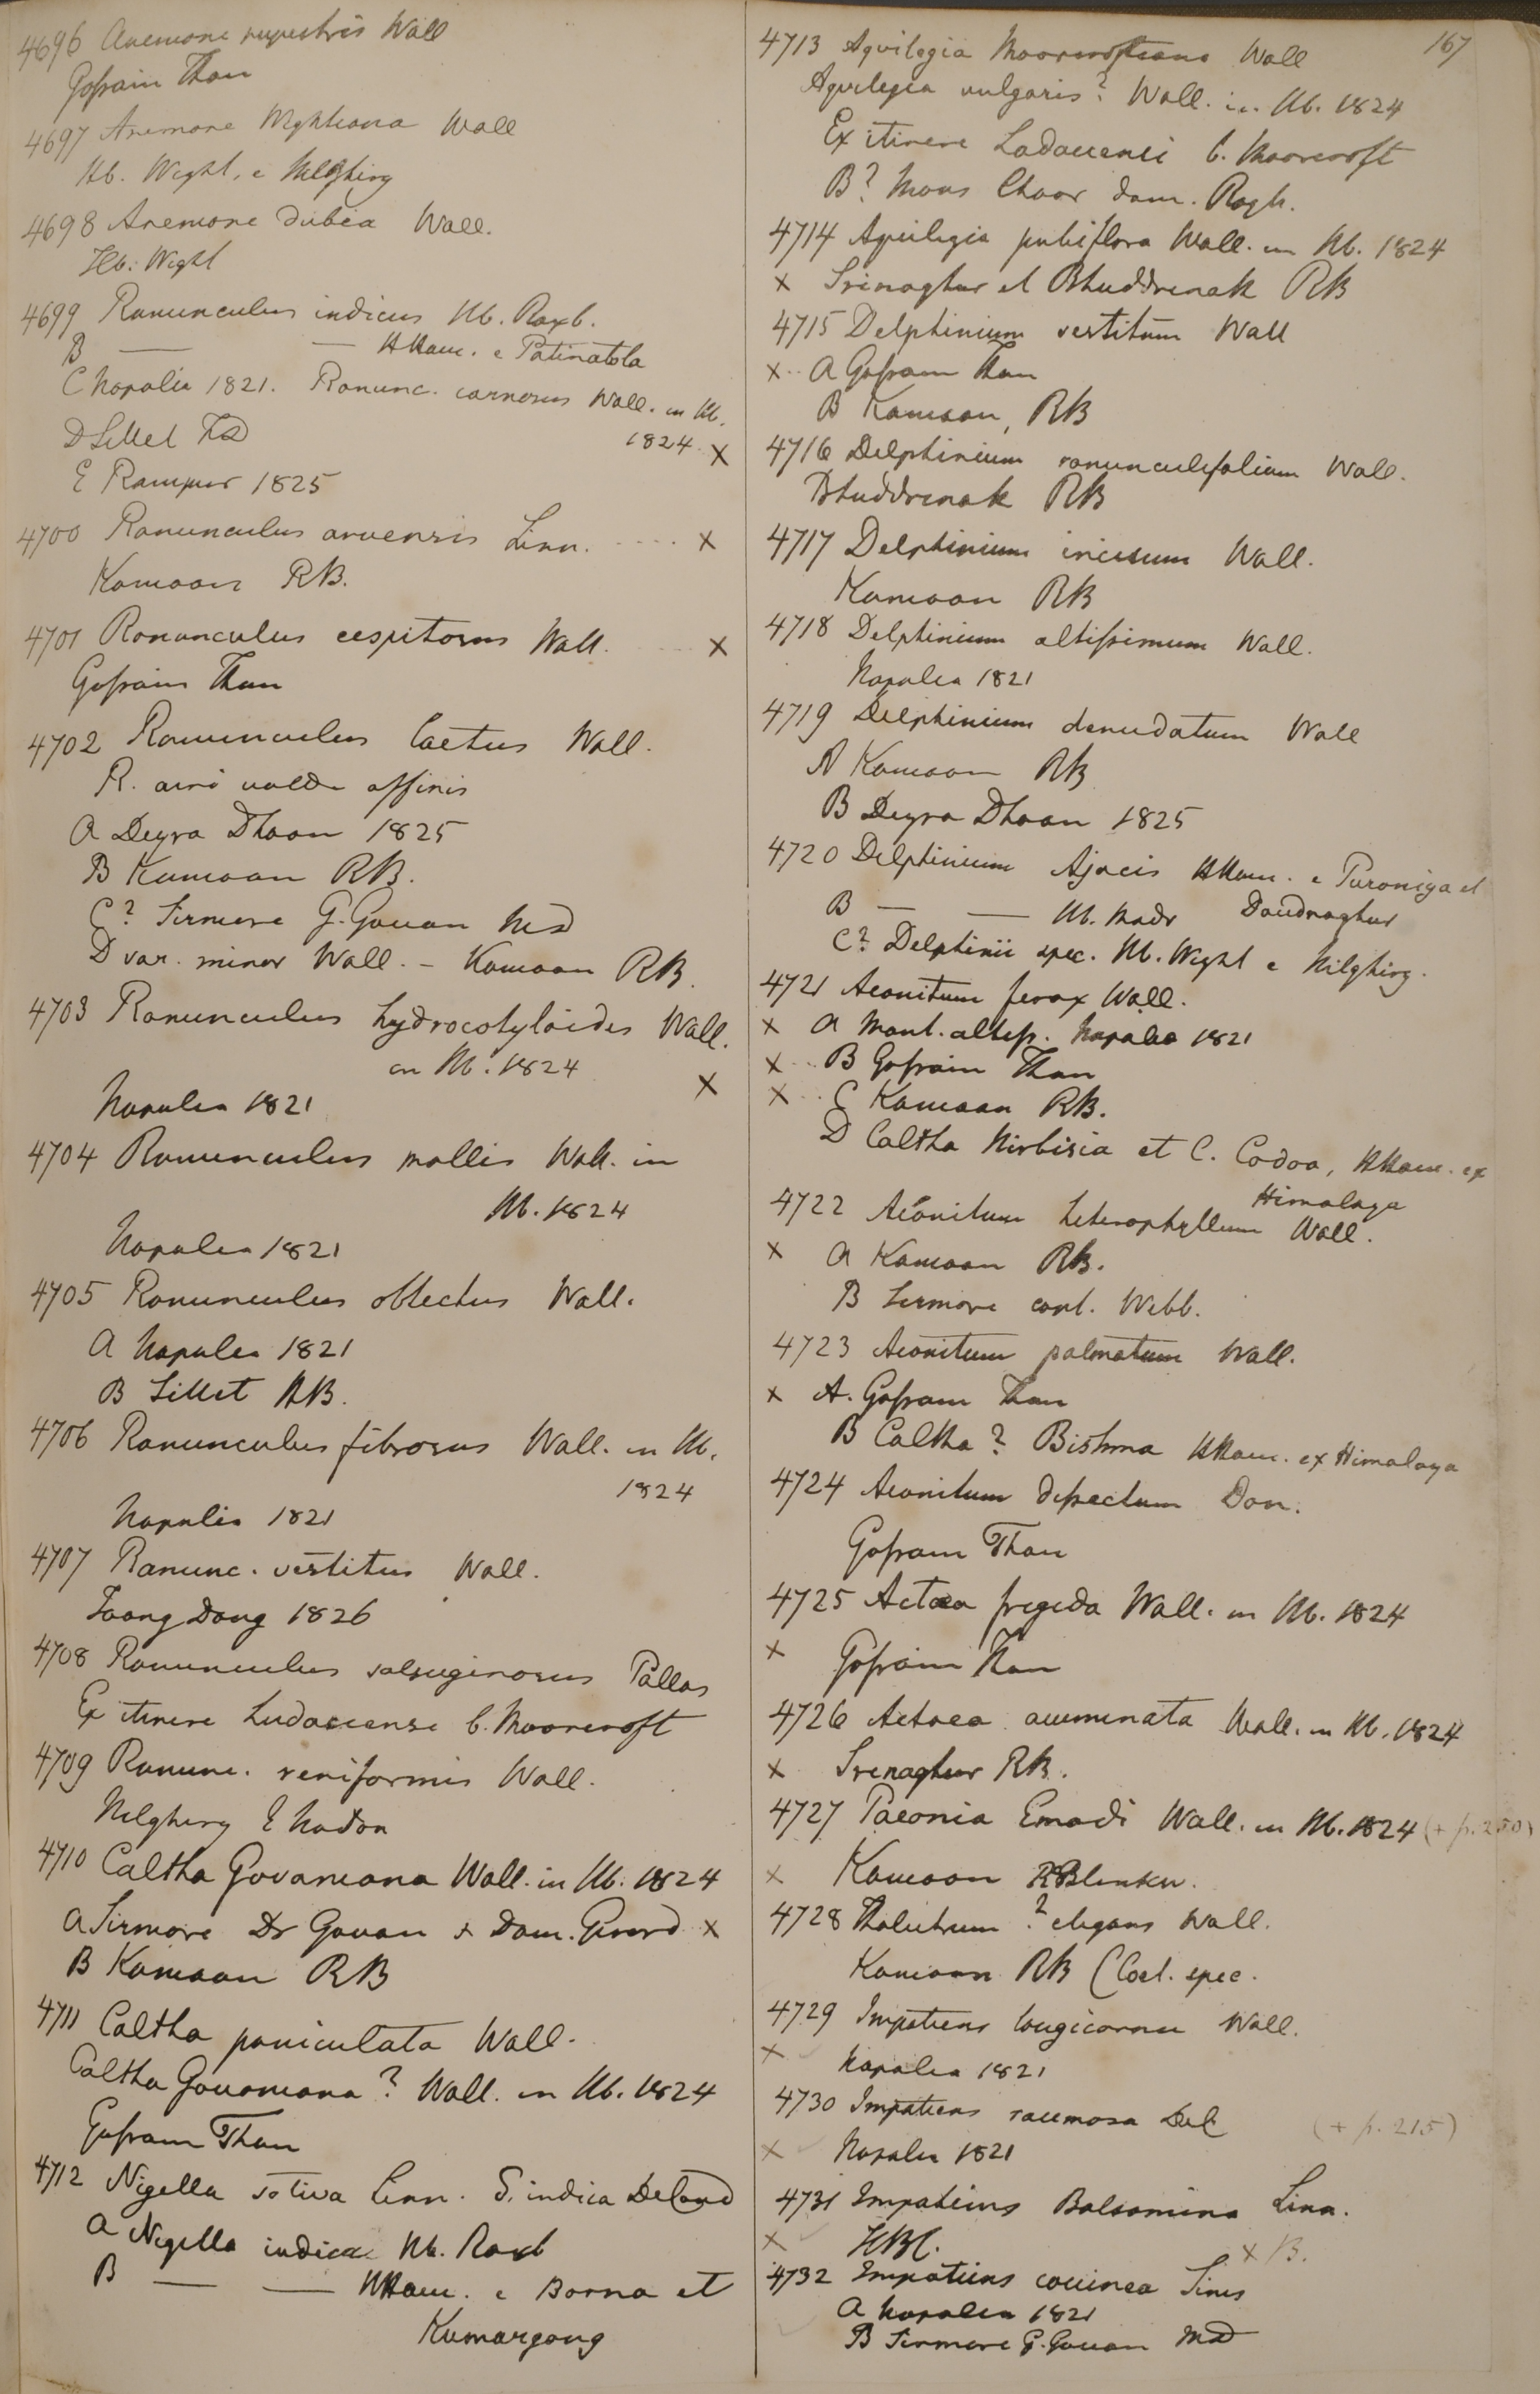 4696 Anemone rupestris Wall
Gofsain Than
4697 Anemone Wightiana Wall
Hb. Wight, e Nilghiry
4698 Anemone dubia Wall.
Hb. Wight
4699 Ranunculus indicus Hb. Roxb.
B — — HHam. e Patinatola
C Napalia 1821. Ranunc. carnosus Wall. in Hb.
1824 X
D Sillet FD
E Rampur 1825
4700 Ranunculus arvensis Linn. .... X
Kamaon RB.
4701 Ranunculus cespitosus Wall. X
Gofsain Than
4702 Ranunculus laetus Wall.
R. acri valde affinis
A Deyra Dhoon 1825
B Kamaon RB.
C? Sirmore G. Govan MD
D var. minor Wall. – Kamaon RB.
4703 Ranunculus hydrocotyloides Wall.
in Hb. 1824
X
Napalia 1821
4704 Ranunculus mollis Wall. in
Hb. 1824
Napalia 1821
4705 Ranunculus oblectus Wall.
A Napalia 1821
B Sillet RB.
4706 Ranunculus fibrosus Wall. in Hb.
1824
Napalia 1821
4707 Ranunc. vestitus Wall.
Toong Dong 1826
4708 Ranunculus salsuginosus Pallas
Ex itinere Ludaccense b. Moorcroft
4709 Ranunc. reniformis Wall.
Nilghiry E Noton
4710 Caltha Govaniana Wall. in Hb. 1824
A Sirmore Dr Govan & Dom. Gerard X
B Kamaon RB
4711 Caltha paniculata Wall.
Caltha Govaniana? Wall. in Hb. 1824
Gofsain Than
4712 Nigella sativa Linn. S. indica DeCand
A Nigella indica Hb. Roxb
B — — HHam. e Borna et
Kumargong
167
4713 Aquilegia Moorcroftiana Wall
Aquilegia vulgaris? Wall. in Hb. 1824
Ex itinere Ladaccensi b. Moorcroft
B? Mons Choor dom. Royle.
4714 Aquilegia pubiflora Wall. in Hb. 1824
x Srinaghur et Bhuddrinak RB
4715 Delphinium vestitum Wall
x A Gofsain Than
B Kamaon, RB
4716 Delphinium ranunculifolium Wall.
Bhuddrinak RB
4717 Delphinium incisum Wall.
Kamaon RB
4718 Delphinium altifsimum Wall.
Napalia 1821
4719 Delphinium denudatum Wall
A Kamaon RB
B Deyra Dhoon 1825
4720 Delphinium Ajacis HHam. e Puroniya et
Daudnaghur
B — — Hb. Madr
C? Delphinii spec. Hb. Wight e Nilghiry.
4721 Aconitum ferox Wall.
x A Mont. altifs. Napalia 1821
x B Gofsain Than
x C Kamaon RB.
D Caltha Nirbisia et C. Codoa, HHam. ex
Himalaya
4722 Aconitum heterophyllum Wall.
x A Kamaon RB.
B Sirmore cont. Webb.
4723 Aconitum palmatum Wall.
x A. Gofsain Than
B Caltha? Bishma HHam. ex Himalaya
4724 Aconitum difsectum Don.
Gofsain Than
4725 Actaea frigida Wall. in Hb. 1824
x Gofsain Than
4726 Actaea acuminata Wall. in Hb. 1824
x Srenaghur RB.
4727 Paeonia Emodi Wall. in Hb. 1824 (+ p. 250)
x Kamaon RBlinkw.
4728 Thalictrum? elegans Wall.
Kamaon RB (Coel. spec.
4729 Impatiens longicornu Wall.
x Napalia 1821
4730 Impatiens racemosa DeC (+ p. 215)
x Napalia 1821
4731 Impatiens Balsamina Linn.
x HBC. x B.
4732 Impatiens coccinea Sims
A Napalia 1821
B Sirmore G. Govan MD